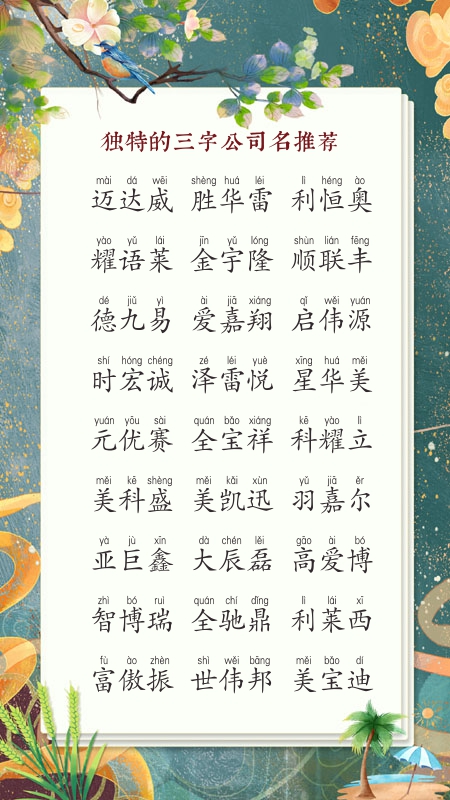 独特的三字公司名推荐
mài dá wēi shèng huá léi lì héng ào
迈达威 胜华雷 利恒奥
yào yǔ lái jīn yǔ lóng shùn lián fēng
耀语莱 金宇隆 顺联丰
dé jiǔ yì ài jiā xiáng qǐ wěi yuán
德九易 爱嘉翔 启伟源
shí hóng chéng zé léi yuè xīng huá měi
时宏诚 泽雷悦 星华美
yuán yōu sài quán bǎo xiáng kē yào lì
元优赛 全宝祥 科耀立
měi kē shèng měi kǎi xùn yǔ jiā ěr
美科盛 美凯迅 羽嘉尔
yà jù xīn dà chén lěi gāo ài bó
亚巨鑫 大辰磊 高爱博
zhì bó ruì quán chí dǐng lì lái xī
智博瑞 全驰鼎 利莱西
fù ào zhèn shì wěi bāng měi bǎo dí
富傲振 世伟邦 美宝迪